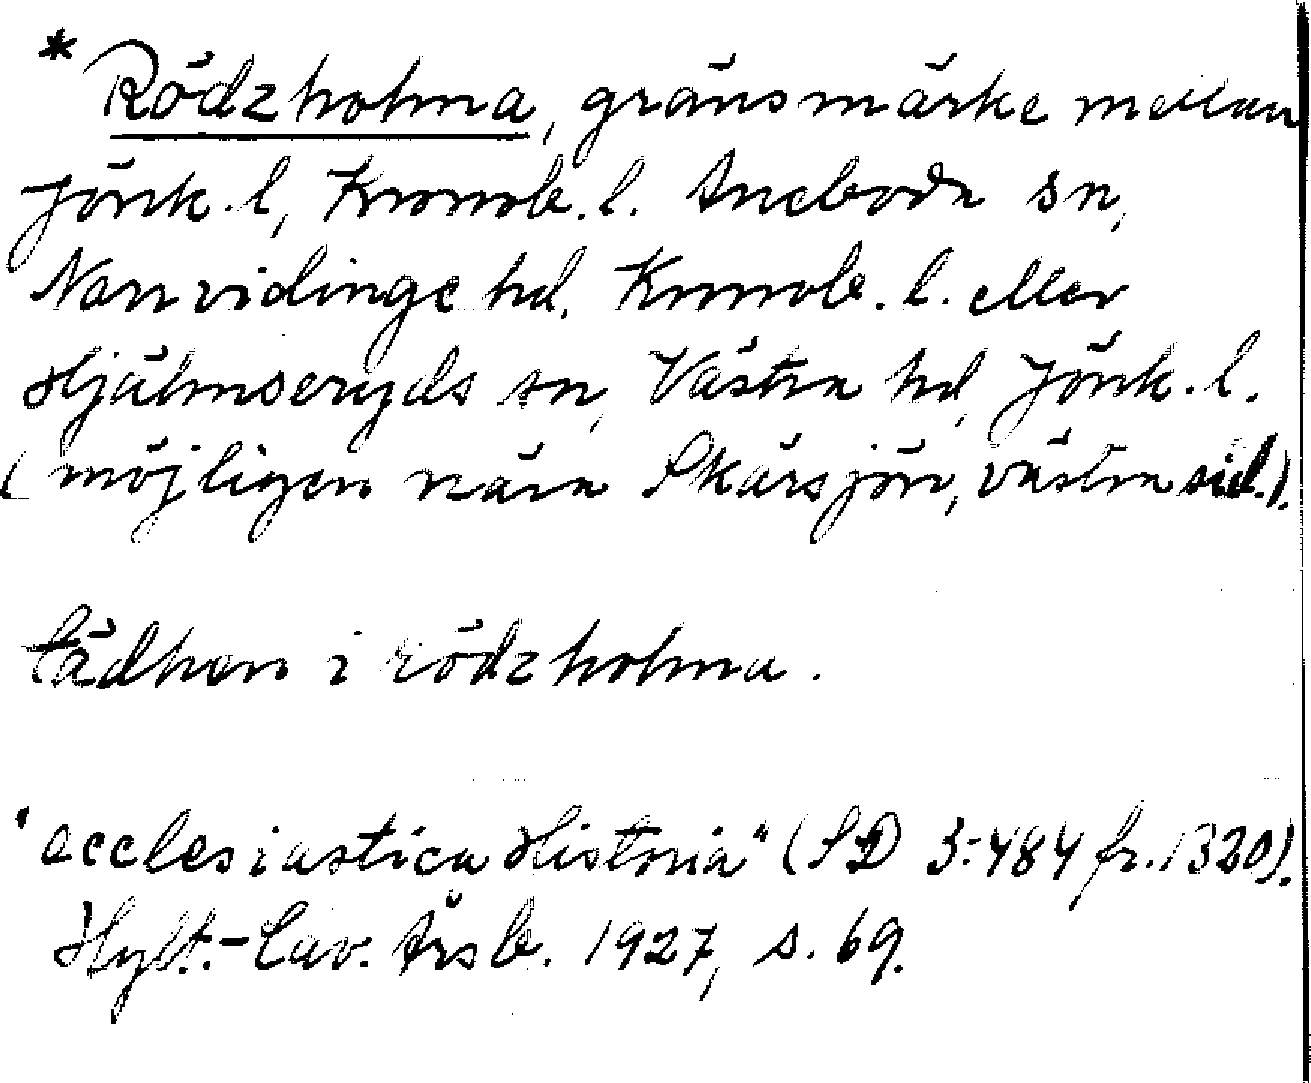 * Rödzholma, gränsmärke mellan
Jönk. l, Kronob. l. Aneboda sn,
Norrvidinge hd. Kronob. l. eller
Hjälmseryds sn, Västra hd, Jönk. l.
(möjligen nära Skärsjön, västra sid.).
lädhen i rödzholma.
"ecclesiastica Historia" (SD 3:484 fr. 1320).
Hylt.-Cav. Årsb. 1927, s. 69.